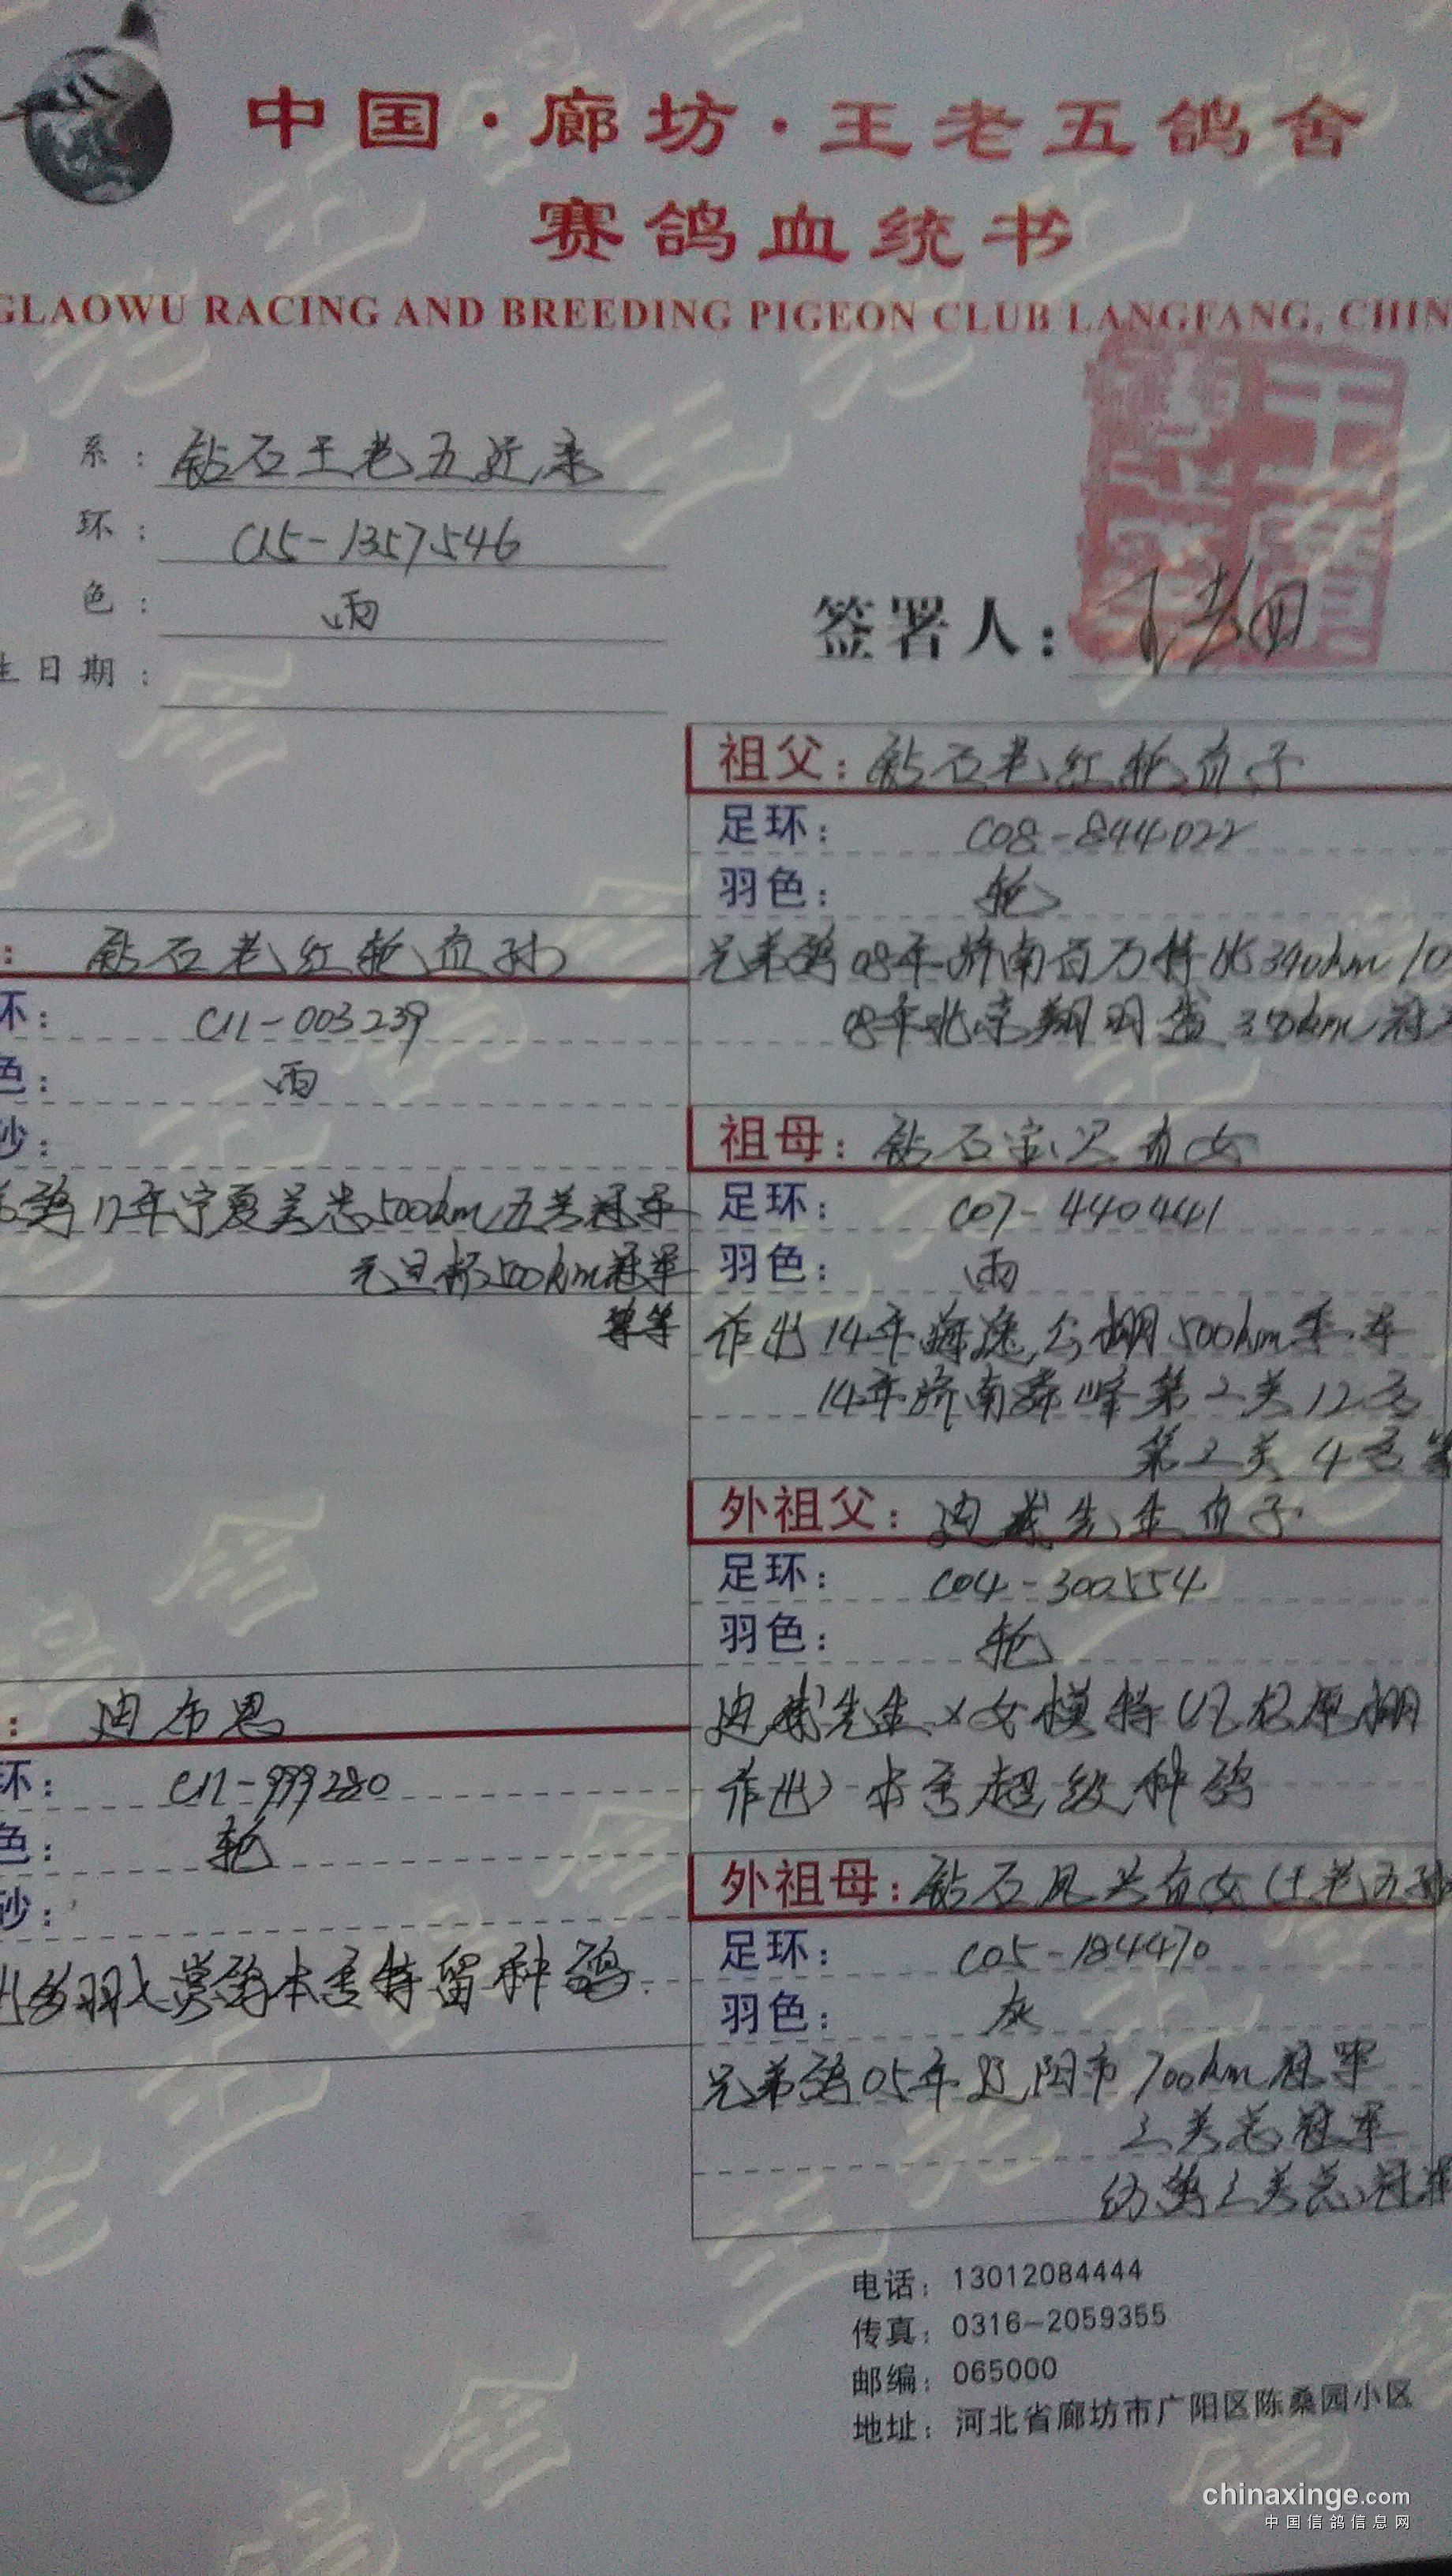 中国·廊坊·王老五鸽舍
赛鸽血统书
GLAOWU RACING AND BREEDING PIGEON CLUB LANGFANG, CHIN
系：钻石王老五近亲
环：C15-1357546
色：雨
生日期：
签署人：
祖父：钻石老红轮直子
足环：C08-844022
羽色：轮
兄弟鸽08年济南百万特比340km 10
08年北京翔明盛350km冠
：钻石老红轮直孙
环：C11-003239
色：雨
砂：
鸽12年宁夏吴忠500km五关冠军
元旦杯500km冠军
等等
祖母：钻石 直女
足环：C07-440441
羽色：雨
作出14年海逸公棚500km季军
14年济南舜峰第二关12名
第三关4名等
外祖父：迪威先生直子
足环：C04-300554
羽色：轮
迪威先生×女模特 原棚
作出 本舍超级种鸽
：迪布恩
环：C12-999280
色：轮
砂：
出多羽大奖鸽本舍特留种鸽.
外祖母：钻石凤头直女（王老五
足环：C05-184470
羽色：灰
兄弟鸽05年辽阳市700km冠军
三关总冠军
幼鸽三关总冠军
电话：13012084444
传真：0316-2059355
邮编：065000
地址：河北省廊坊市广阳区陈桑园小区
chinaxinge.com
中国信鸽信息网